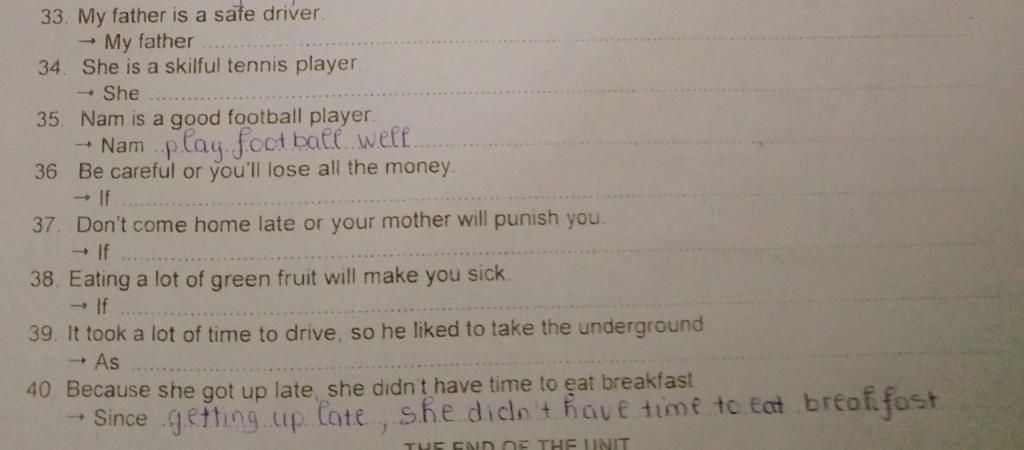 33. My father is a safe driver.
→ My father ........................
34. She is a skilful tennis player.
→ She ........................
35. Nam is a good football player.
→ Nam play football well
36. Be careful or you'll lose all the money.
→ If ........................
37. Don't come home late or your mother will punish you.
→ If ........................
38. Eating a lot of green fruit will make you sick.
→ If ........................
39. It took a lot of time to drive, so he liked to take the underground
→ As ........................
40. Because she got up late, she didn't have time to eat breakfast.
→ Since getting up late, she didn't have time to eat breakfast
THE END OF THE UNIT